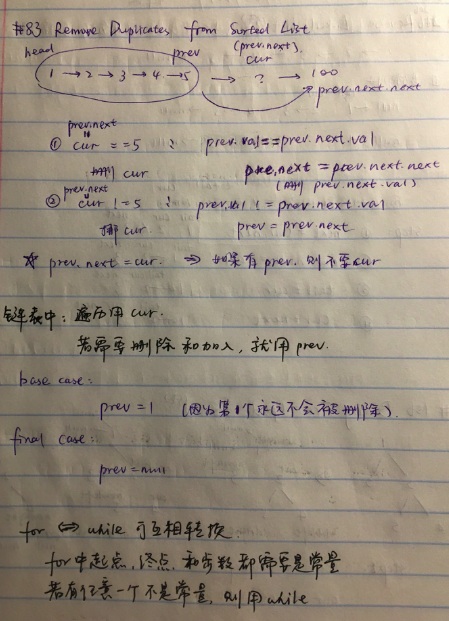 #83 Remove Duplicates from Sorted List
head prev (prev.next).
cur
1 → 2 → 3 → 4 → 5 → ? → 100
prev.next.next
prev.next
① cur == 5 : prev.val == prev.next.val
删 cur prev.next = prev.next.next
(删 prev.next.val)
prev.next
② cur != 5 : prev.val != prev.next.val
挪 cur. prev = prev.next
* prev.next = cur. ⇒ 如果有 prev. 则不要cur
链表中: 遍历用 cur.
若需要删除和加入, 就用 prev.
base case:
prev = 1 (因为第1个永远不会被删除).
final case:
prev = null
for ⇔ while 可互相转换.
for 中起点, 终点, 和步数都需要是常量
若有任意一个不是常量, 则用 while